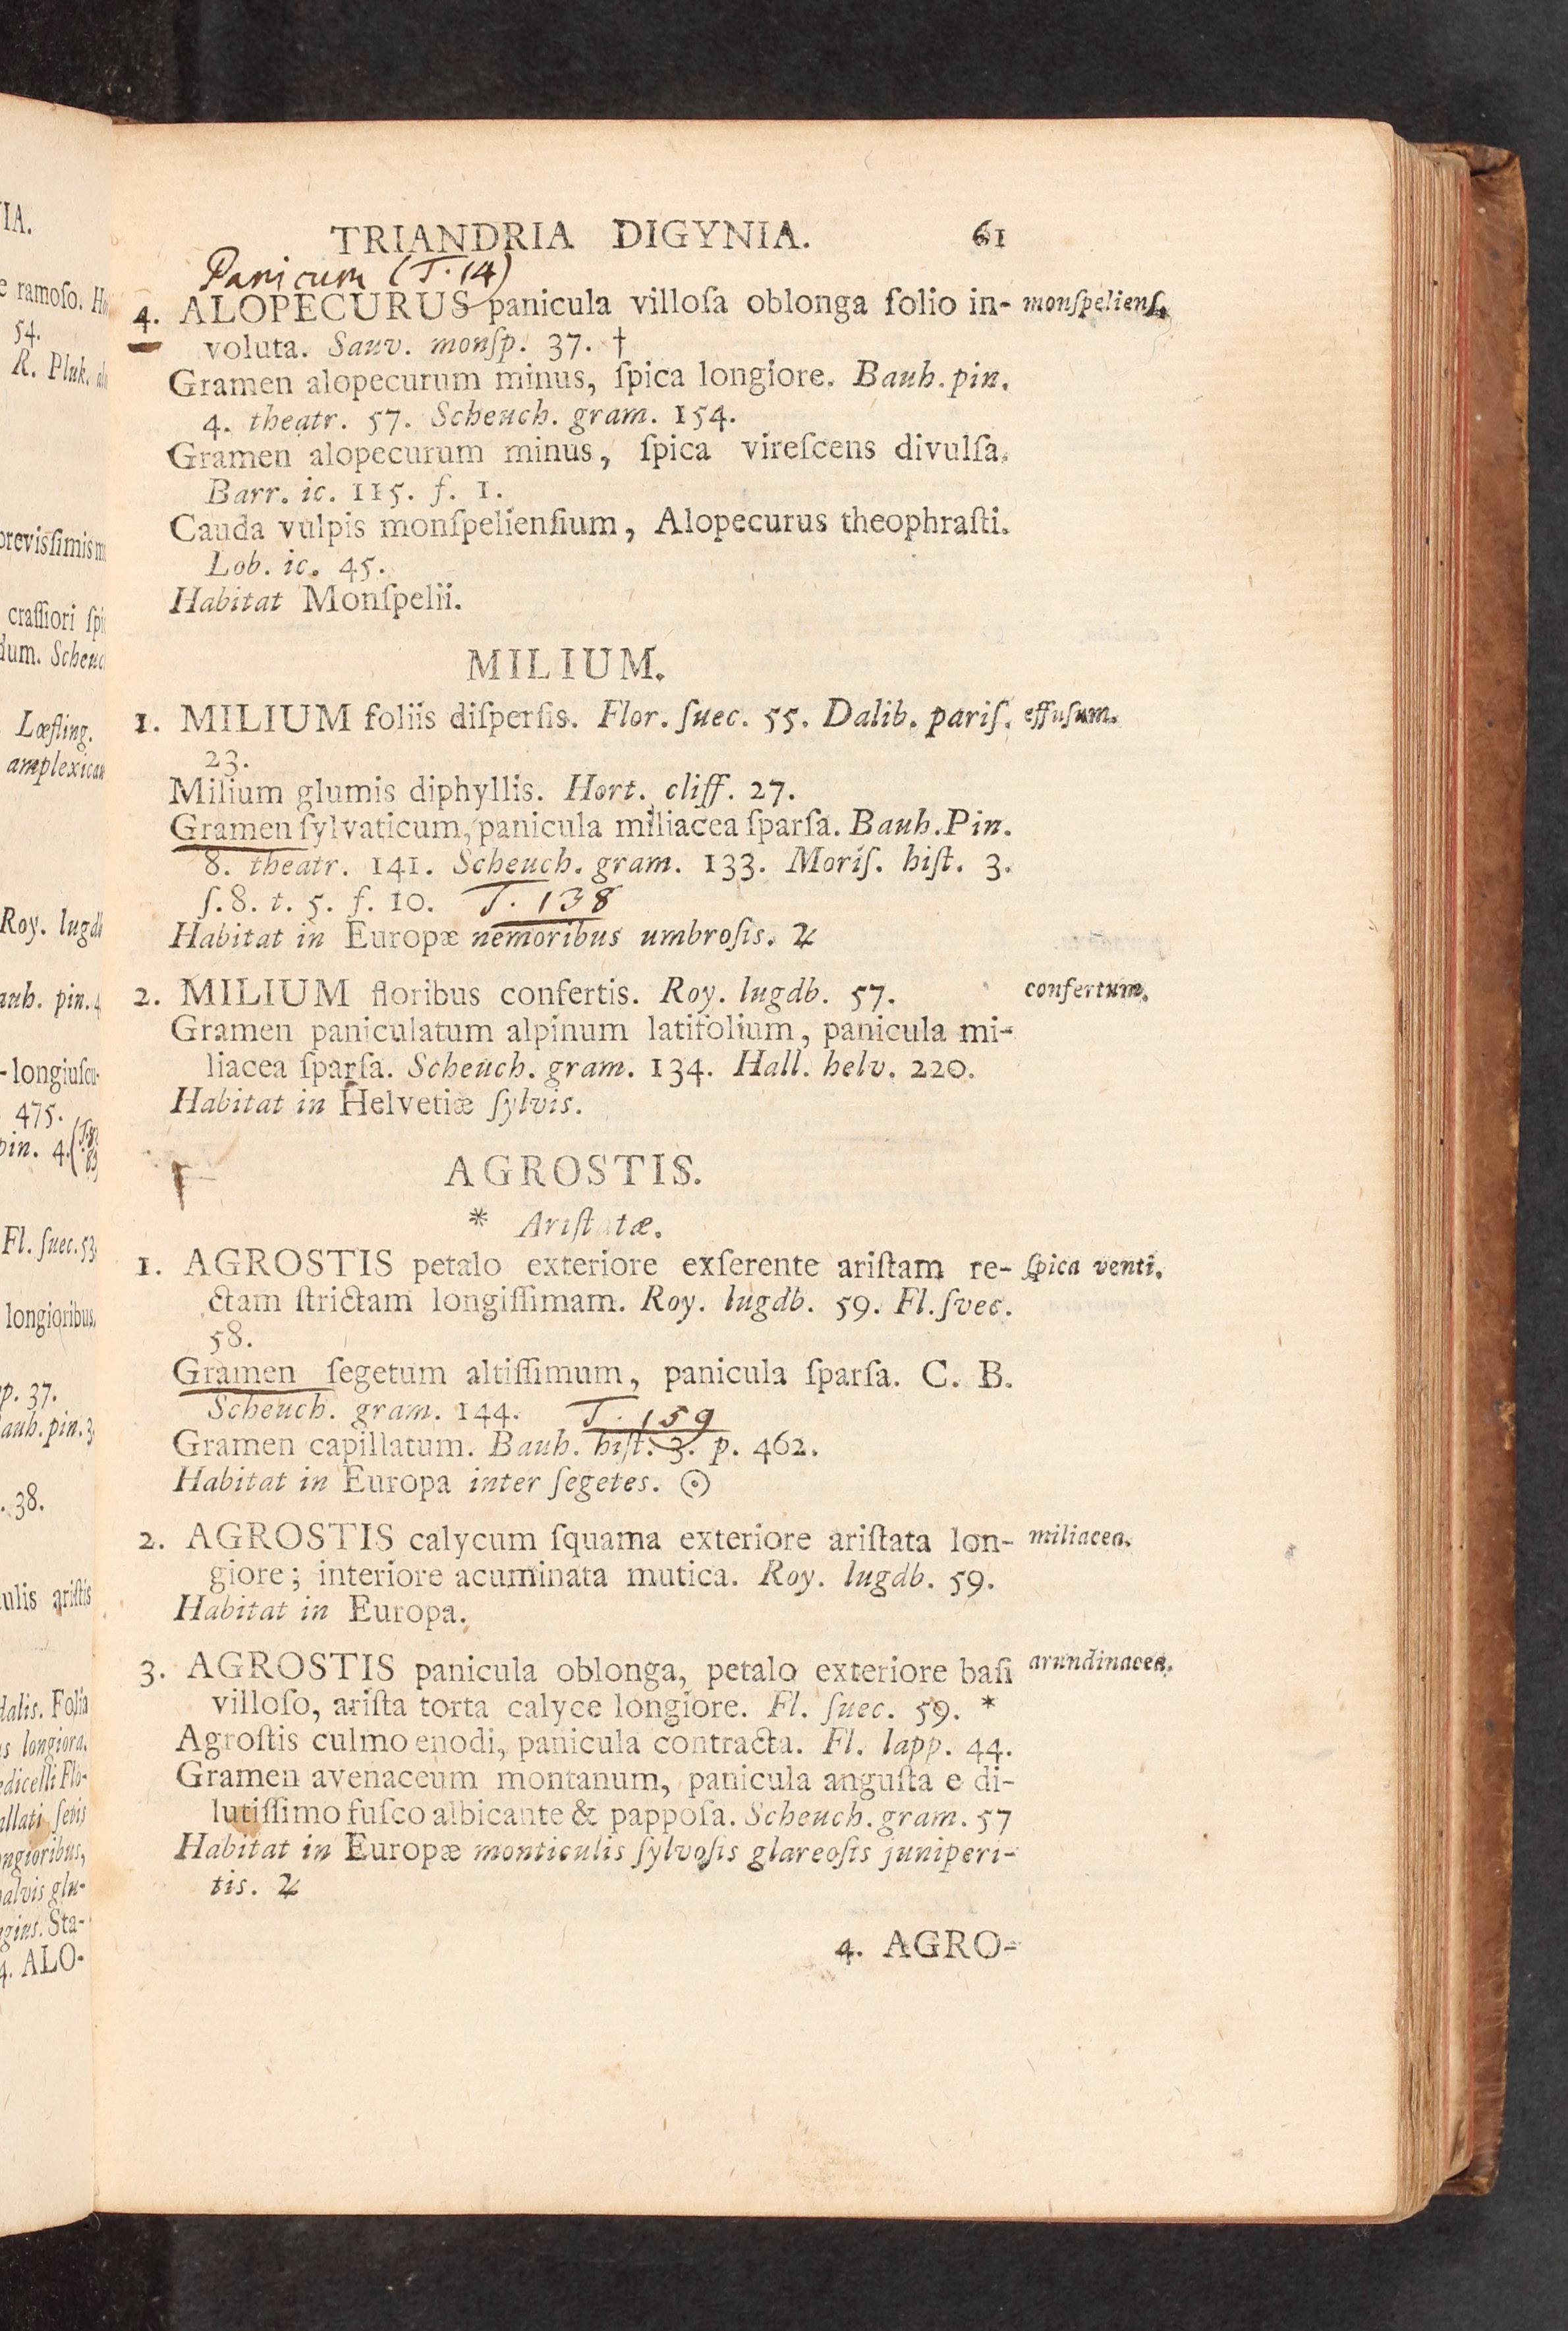 TRIANDRIA DIGYNIA. 61
Panicum (T. 14)
4. ALOPECURUS panicula villoſa oblonga folio in- monſpelienſ.
voluta. Sauv. monſp. 37. †
Gramen alopecurum minus, ſpica longiore. Bauh. pin.
4. theatr. 57. Scheuch. gram. 154.
Gramen alopecurum minus, ſpica vireſcens divulſa.
Barr. ic. 115. f. 1.
Cauda vulpis monſpelienſium, Alopecurus theophraſti.
Lob. ic. 45.
Habitat Monſpelii.
MILIUM.
1. MILIUM foliis diſperſis. Flor. ſuec. 55. Dalib. pariſ. effuſum.
23.
Milium glumis diphyllis. Hort. cliff. 27.
Gramen ſylvaticum, panicula miliacea ſparſa. Bauh. Pin.
8. theatr. 141. Scheuch. gram. 133. Moriſ. hiſt. 3.
ſ. 8. t. 5. f. 10. T. 138
Habitat in Europæ nemoribus umbroſis. ♃
2. MILIUM floribus confertis. Roy. lugdb. 57. confertum.
Gramen paniculatum alpinum latifolium, panicula mi-
liacea ſparſa. Scheuch. gram. 134. Hall. helv. 220.
Habitat in Helvetiæ ſylvis.
AGROSTIS.
* Ariſtatæ.
1. AGROSTIS petalo exteriore exſerente ariſtam re- ſpica venti.
ctam ſtrictam longiſſimam. Roy. lugdb. 59. Fl. ſvec.
58.
Gramen ſegetum altiſſimum, panicula ſparſa. C. B.
Scheuch. gram. 144. T. 159
Gramen capillatum. Bauh. hiſt. 3. p. 462.
Habitat in Europa inter ſegetes. ☉
2. AGROSTIS calycum ſquama exteriore ariſtata lon- miliacea.
giore; interiore acuminata mutica. Roy. lugdb. 59.
Habitat in Europa.
3. AGROSTIS panicula oblonga, petalo exteriore baſi arundinacea.
villoſo, ariſta torta calyce longiore. Fl. ſuec. 59. *
Agroſtis culmo enodi, panicula contracta. Fl. lapp. 44.
Gramen avenaceum montanum, panicula anguſta e di-
lutiſſimo fuſco albicante & pappoſa. Scheuch. gram. 57
Habitat in Europæ monticulis ſylvoſis glareoſis juniperi-
tis. ♃
4. AGRO-